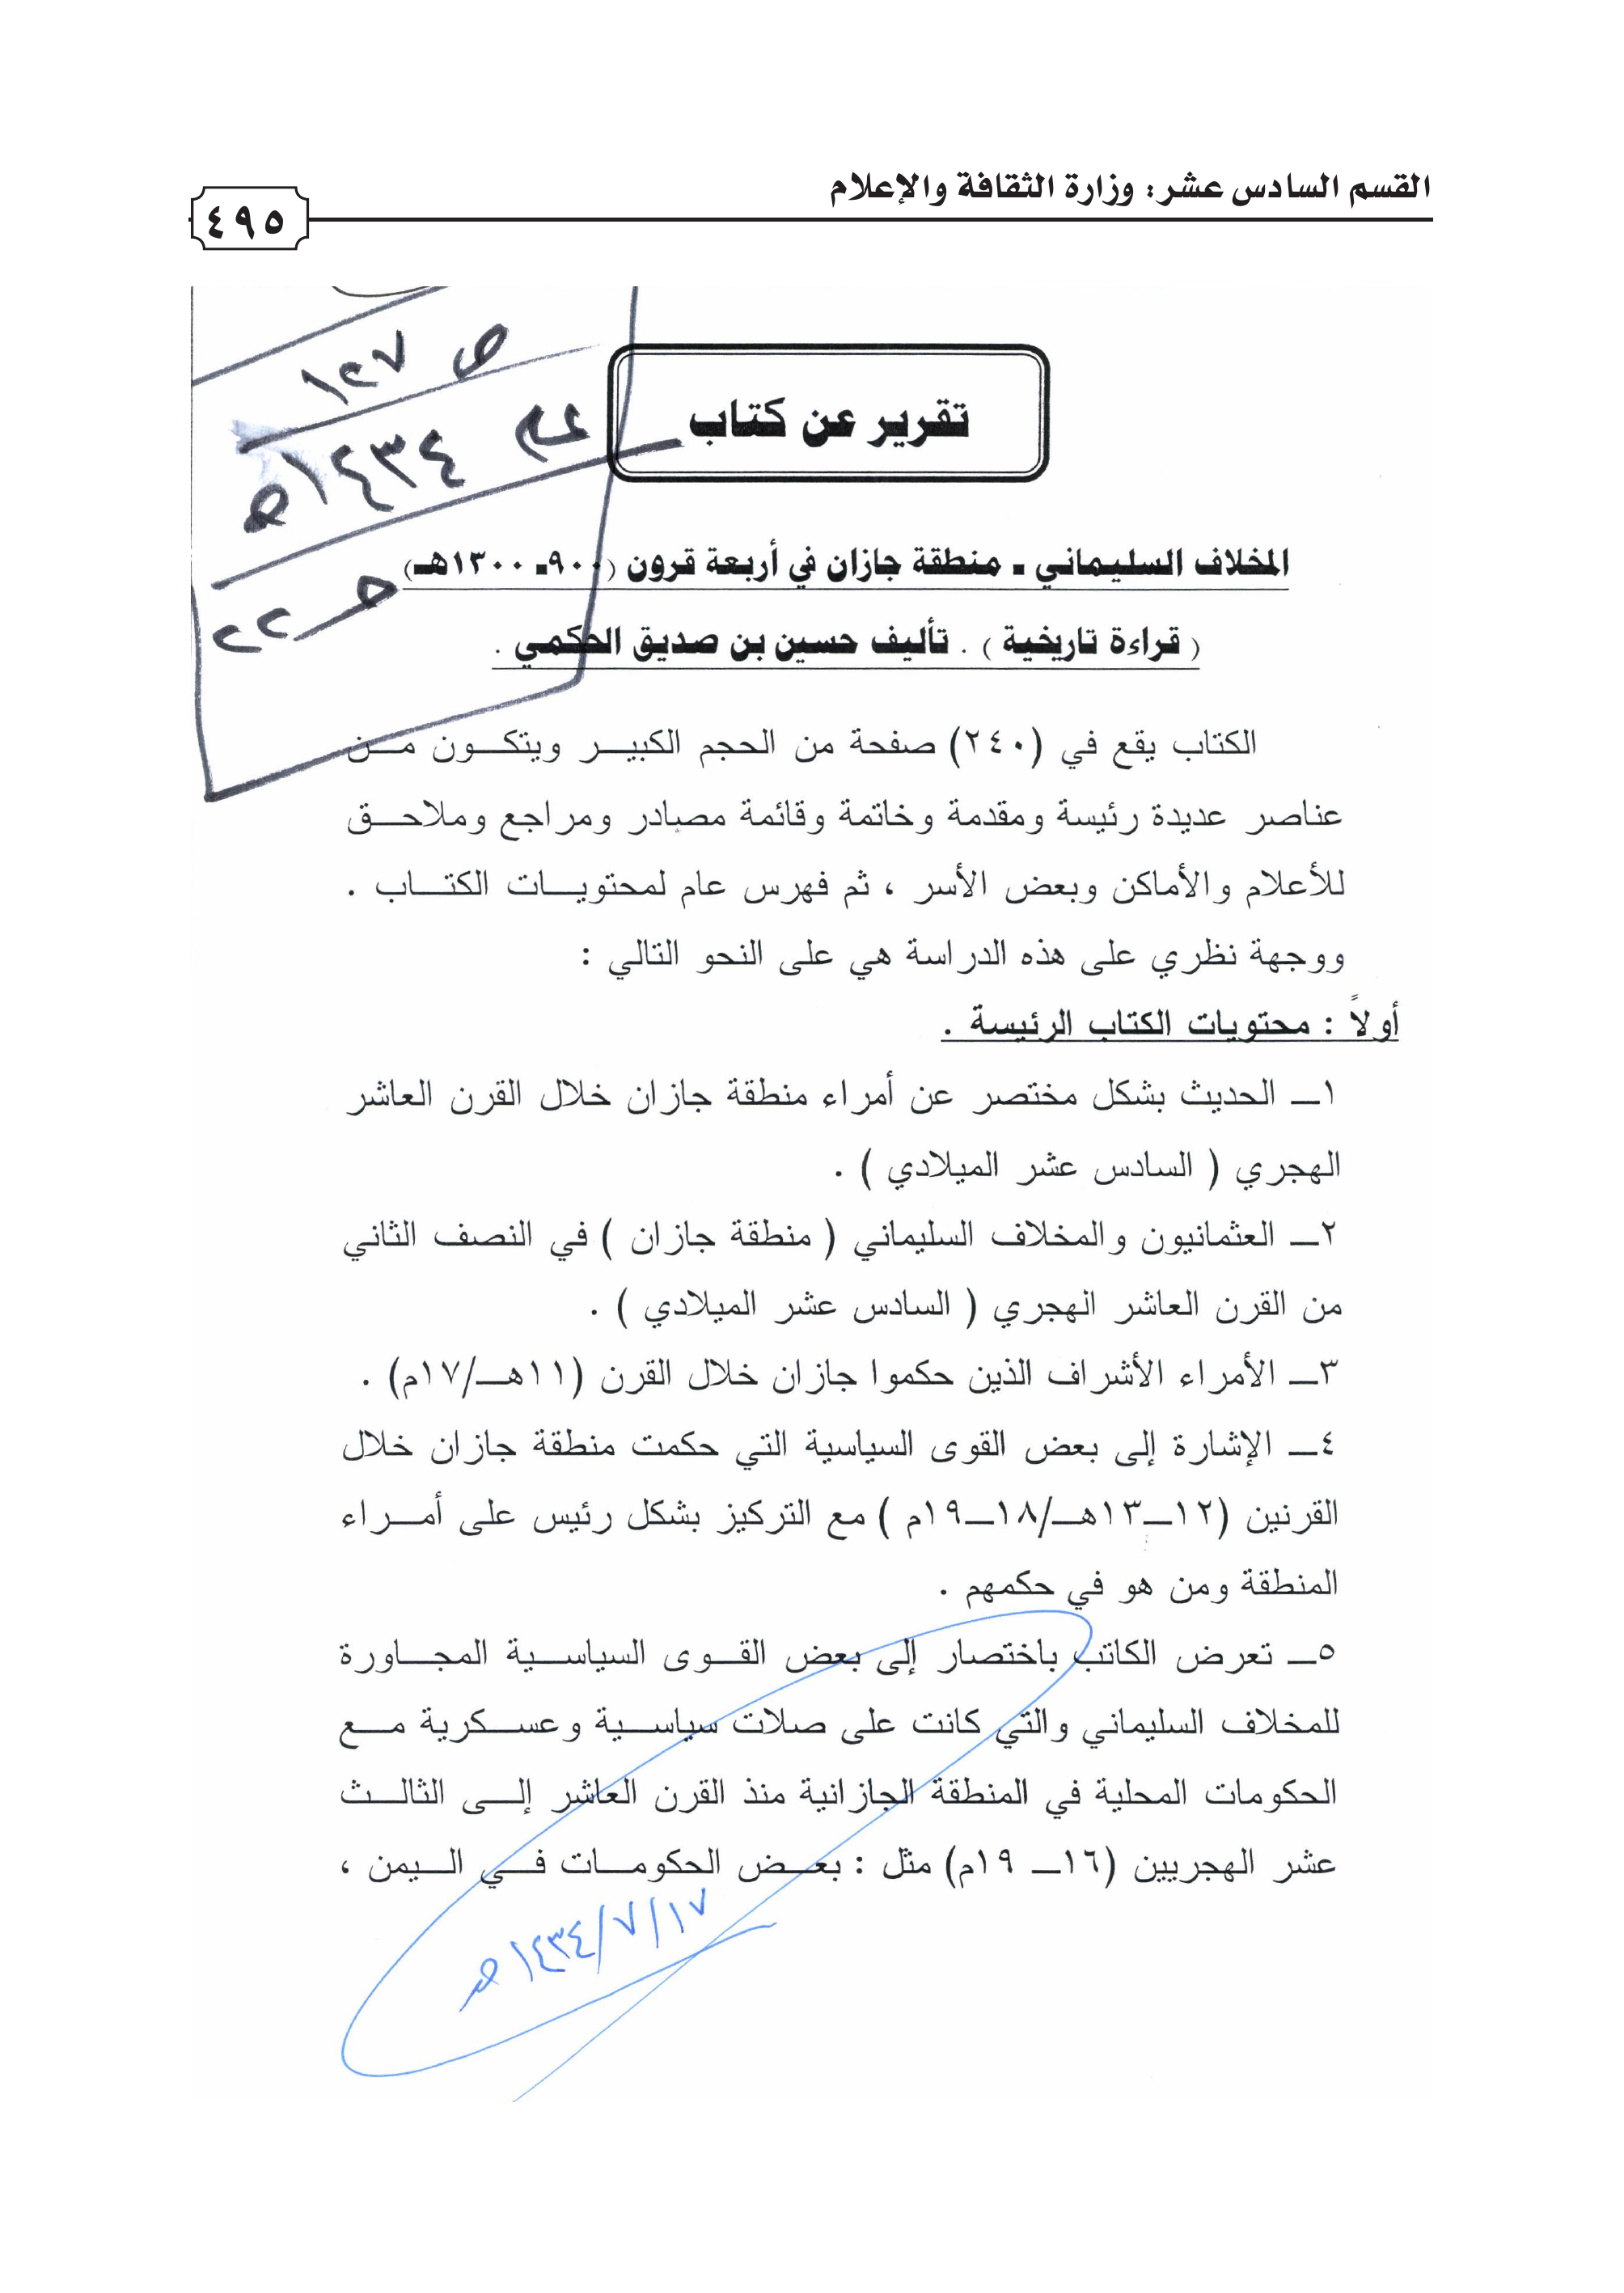 القسم السادس عشر: وزارة الثقافة والإعلام
٤٩٥
ص ١٢٧
عام ١٤٣٤هـ
حـ ٢٢
تقرير عن كتاب
المخلاف السليماني ـ منطقة جازان في أربعة قرون (٩٠٠ـ ١٣٠٠هـ)
( قراءة تاريخية ) . تأليف حسين بن صديق الحكمي .
الكتاب يقع في (٢٤٠) صفحة من الحجم الكبير ويتكون من
عناصر عديدة رئيسة ومقدمة وخاتمة وقائمة مصادر ومراجع وملاحق
للأعلام والأماكن وبعض الأسر ، ثم فهرس عام لمحتويات الكتاب .
ووجهة نظري على هذه الدراسة هي على النحو التالي :
أولاً : محتويات الكتاب الرئيسة .
١ــ الحديث بشكل مختصر عن أمراء منطقة جازان خلال القرن العاشر
الهجري ( السادس عشر الميلادي ) .
٢ــ العثمانيون والمخلاف السليماني ( منطقة جازان ) في النصف الثاني
من القرن العاشر الهجري ( السادس عشر الميلادي ) .
٣ــ الأمراء الأشراف الذين حكموا جازان خلال القرن (١١هــ/١٧م) .
٤ــ الإشارة إلى بعض القوى السياسية التي حكمت منطقة جازان خلال
القرنين (١٢ــ١٣هــ/١٨ــ١٩م ) مع التركيز بشكل رئيس على أمراء
المنطقة ومن هو في حكمهم .
٥ــ تعرض الكاتب باختصار إلى بعض القوى السياسية المجاورة
للمخلاف السليماني والتي كانت على صلات سياسية وعسكرية مع
الحكومات المحلية في المنطقة الجازانية منذ القرن العاشر إلى الثالث
عشر الهجريين (١٦ــ ١٩م) مثل : بعض الحكومات في اليمن ،
١٤٣٤/٧/١٧هـ